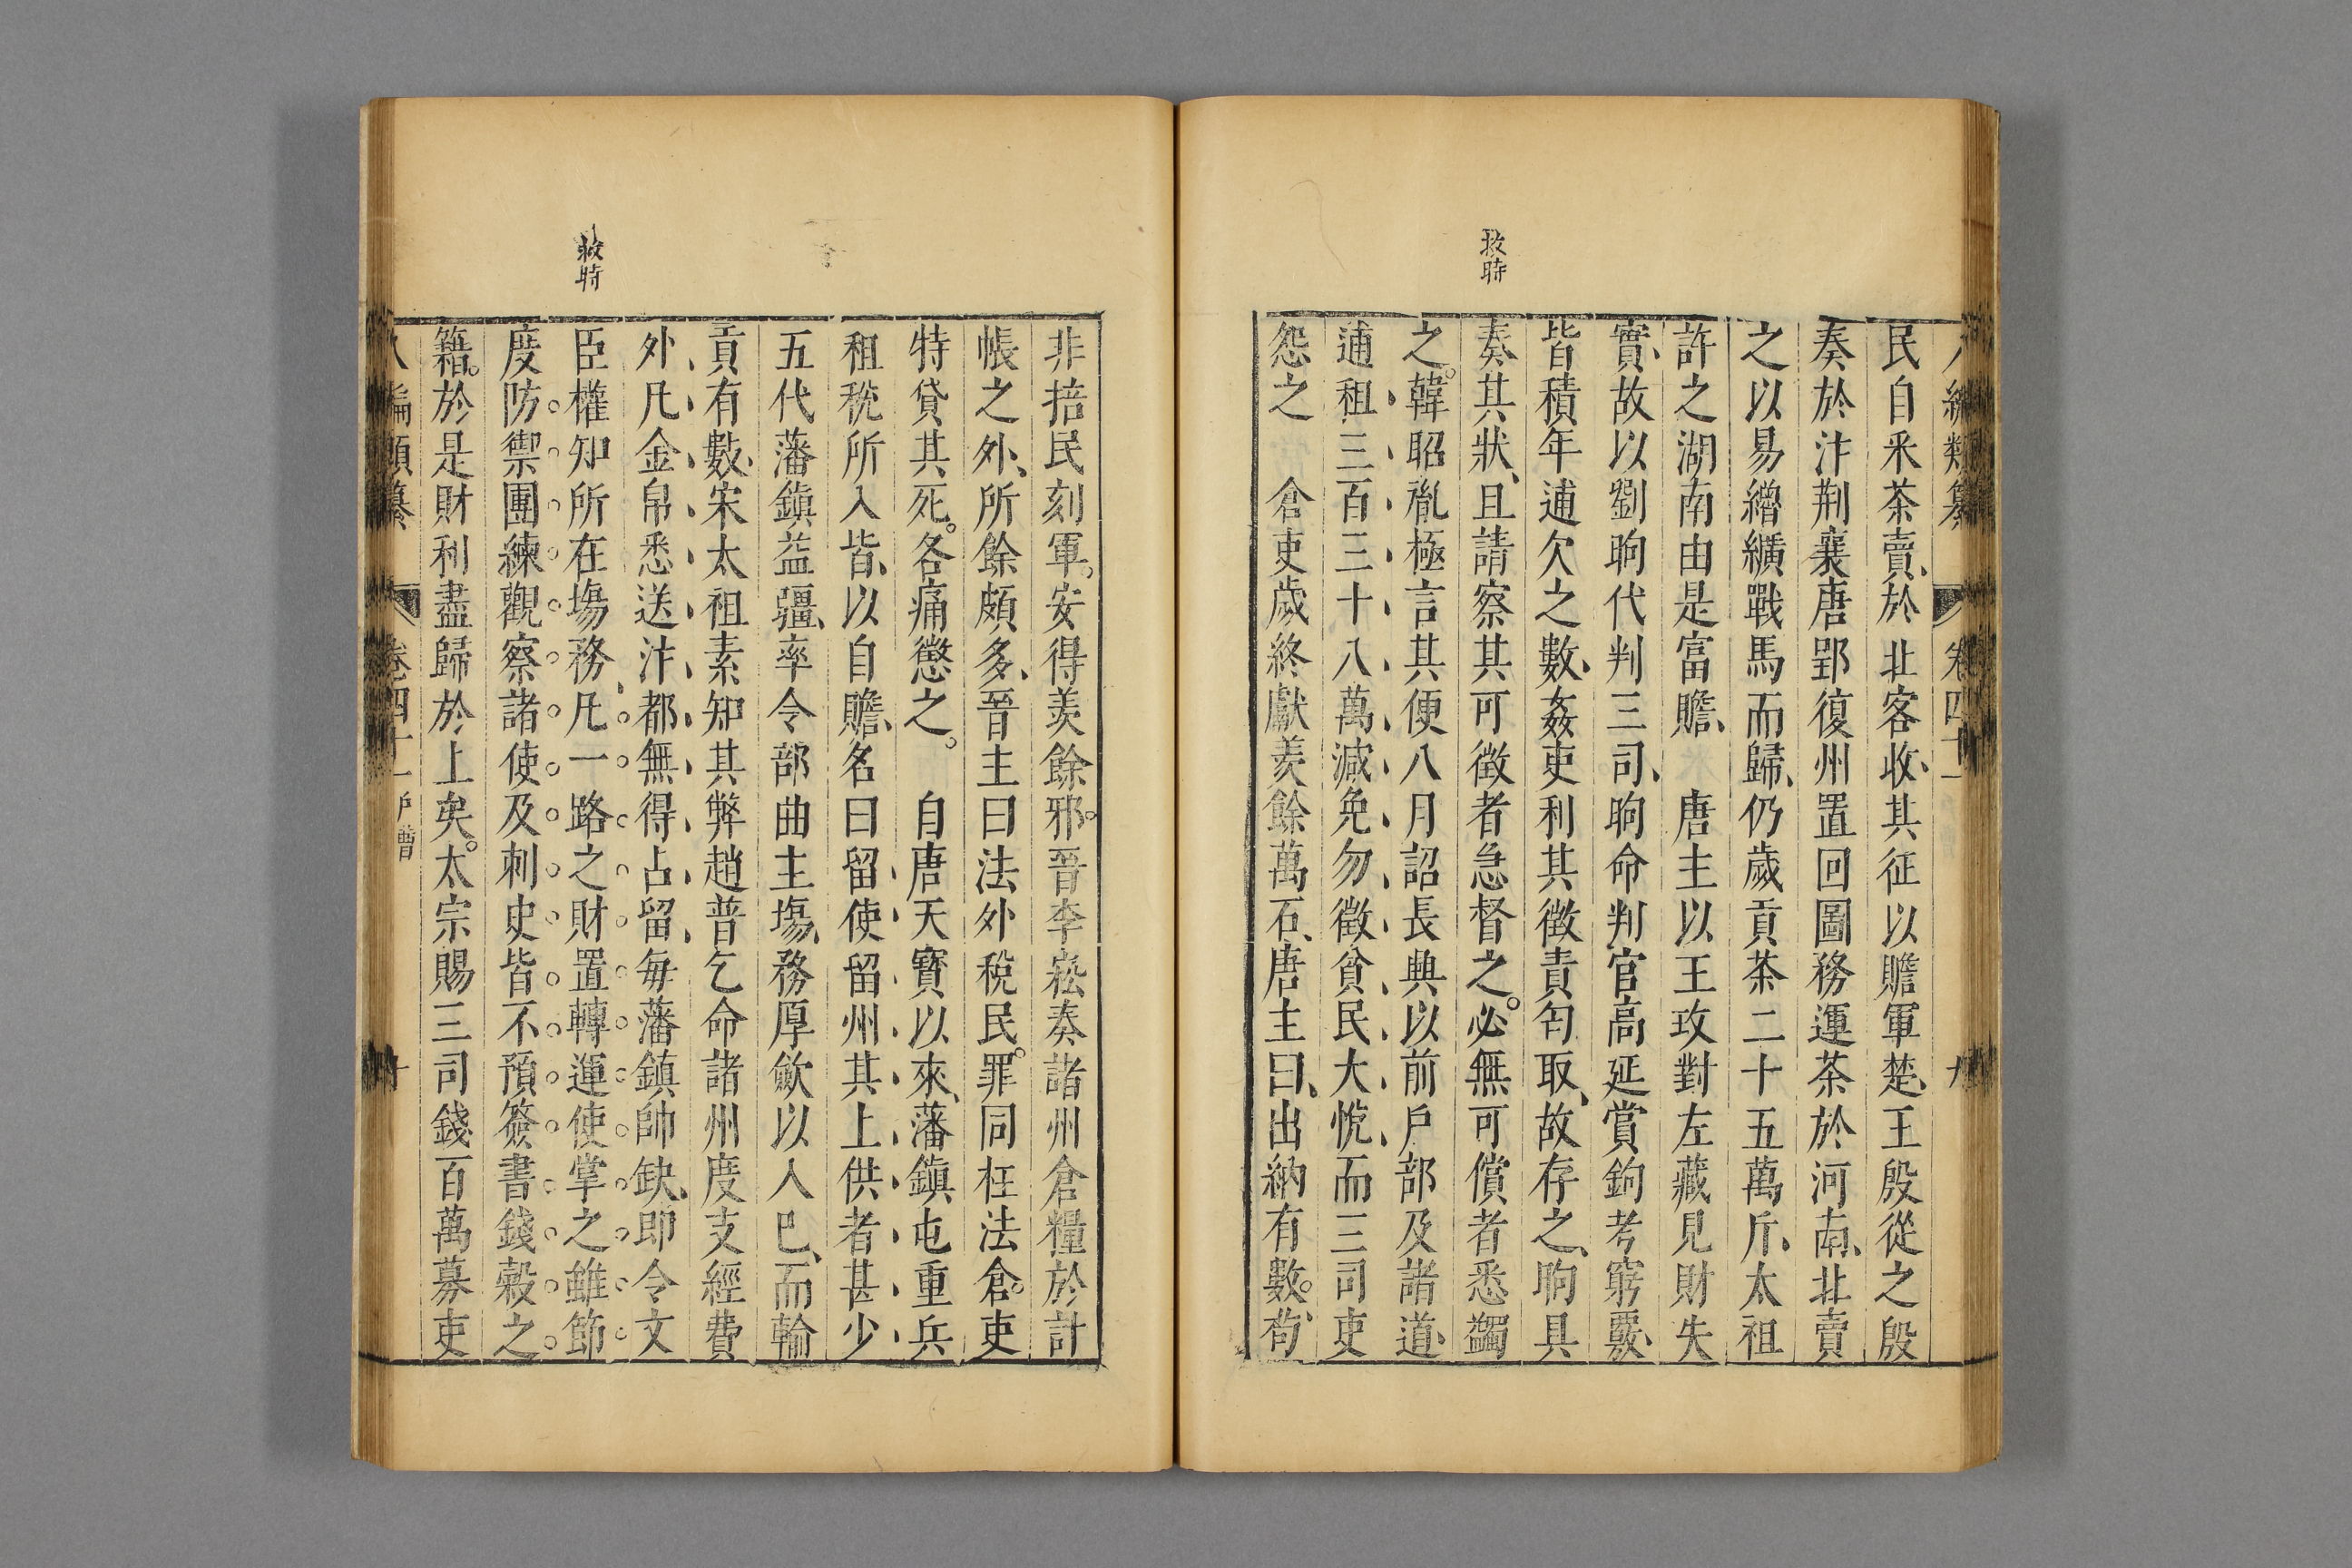 八編類纂 卷四十一 九
救時
民自釆茶賣、於北客收、其征以贍軍楚、王殷從之殷
奏於汴荆襄唐郢復州置回圖務運茶於河南、北賣
之以易繒纊戰馬而歸、仍歲貢茶二十五萬斤、太祖
許之湖南由是富贍、 唐主以王玫對左藏見財失
實、故以劉昫代判三司、昫命判官高延賞鉤考窮覈、
皆積年逋欠之數、姦吏利其徵責匄取、故存之、昫具
奏其狀、且請察其可徵者急督之。必無可償者悉蠲
之。韓昭胤極言其便八月詔長典以前戶部及諸道、
逋租三百三十八萬減免勿徵貧民大悅而三司吏
怨之 倉吏歲終獻羨餘萬石、唐主曰、出納有數。苟
救時
非掊民刻軍。安得羨餘邪。晉李崧奏諸州倉糧於計
帳之外、所餘頗多、晉主曰法外稅民。罪同枉法倉。吏
特貸其死。各痛懲之。 自唐天寶以來、藩鎮屯重兵
租稅所入皆、以自贍、名曰留使留州其上供者甚少
五代藩鎮益疆、率令部曲主塲、務厚歛以入巳、而輸
貢有數、宋太祖素知其弊趙普乞命諸州度支經費
外凡金帛悉送汴都無得占留、每藩鎮帥缺、即令文
臣權知所在塲務、凡一路之財置轉運使掌之雖節
度防禦團練觀察諸使及刺史皆不預簽書錢糓之
籍。於是財利盡歸於上矣。太宗賜三司錢百萬募吏
八編類纂 卷四十一 戶曹 十